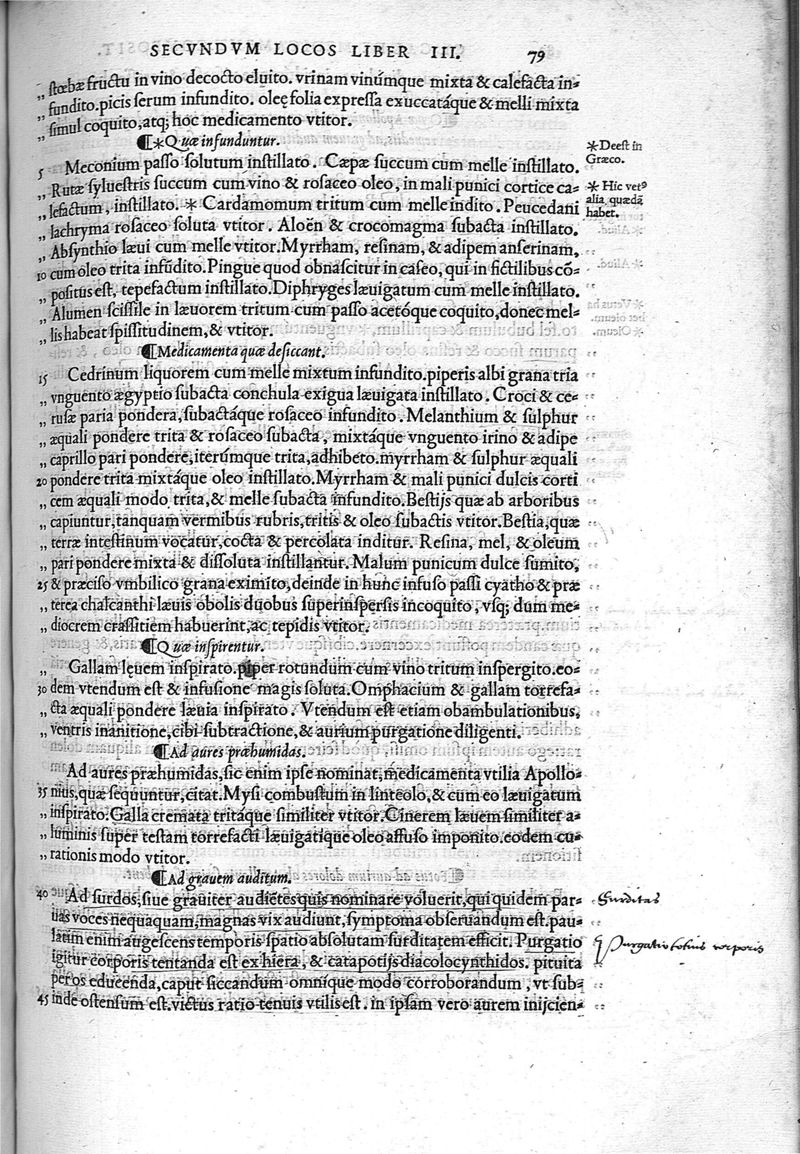 SECVNDVM LOCOS LIBER III. 79
„ stœbæ fructu in vino decocto eluito. vrinam vinúmque mixta & calefacta in-
„ fundito. picis serum infundito. oleę folia expressa exuccatáque & melli mixta
„ simul coquito, atq; hoc medicamento vtitor.
„ ¶*Quæ infunduntur.
*Deest in
Græco.
5 Meconium passo solutum instillato. Cæpæ succum cum melle instillato.
„ Rutæ syluestris succum cum vino & rosaceo oleo, in mali punici cortice ca-
* Hic vetꝰ
alia quædā
habet.
„ lefactum, instillato. * Cardamomum tritum cum melle indito. Peucedani
„ lachryma rosaceo soluta vtitor. Aloën & crocomagma subacta instillato.
„ Absynthio læui cum melle vtitor. Myrrham, resinam, & adipem anserinam,
10 cum oleo trita infūdito. Pingue quod obnascitur in caseo, qui in fictilibus cō-
„ positus est, tepefactum instillato. Diphryges læuigatum cum melle instillato.
„ Alumen scissile in læuorem tritum cum passo acetóque coquito, donec mel-
„ lis habeat spissitudinem, & vtitor.
„ ¶Medicamenta quæ desiccant.
15 Cedrinum liquorem cum melle mixtum infundito. piperis albi grana tria
„ vnguento ægyptio subacta conchula exigua læuigata instillato. Croci & ce-
„ rusæ paria pondera, subactáque rosaceo infundito. Melanthium & sulphur
„ æquali pondere trita & rosaceo subacta, mixtáque vnguento irino & adipe
„ caprillo pari pondere, iterúmque trita, adhibeto. myrrham & sulphur æquali
20 pondere trita mixtáque oleo instillato. Myrrham & mali punici dulcis corti
„ cem æquali modo trita, & melle subacta infundito. Bestijs quæ ab arboribus
„ capiuntur, tanquam vermibus rubris, tritis & oleo subactis vtitor. Bestia, quæ
„ terræ intestinum vocatur, cocta & percolata inditur. Resina, mel, & oleum
„ pari pondere mixta & dissoluta instillantur. Malum punicum dulce sumito,
25 & præciso vmbilico grana eximito, deinde in hunc infuso passi cyatho & præ
„ terea chalcanthi læuis obolis duobus superinspersis incoquito, vsq; dum me-
„ diocrem crassitiem habuerint, ac tepidis vtitor.
¶Quæ inspirentur.
„ Gallam lęuem inspirato. piper rotundum cum vino tritum inspergito. eo-
30 dem vtendum est & infusione magis soluta. Omphacium & gallam torrefa-
„ cta æquali pondere læuia inspirato. Vtendum est etiam obambulationibus,
„ ventris inanitione, cibi subtractione, & aurium purgatione diligenti.
¶Ad aures præhumidas.
Ad aures præhumidas, sic enim ipse nominat, medicamenta vtilia Apollo-
35 nius, quæ sequuntur, citat. Mysi combustum in linteolo, & cum eo læuigatum
„ inspirato. Galla cremata tritáque similiter vtitor. Cinerem læuem similiter a-
„ luminis super testam torrefacti læuigatique oleo affuso imponito. eodem cu-
„ rationis modo vtitor.
¶Ad grauem auditum.
40 Ad surdos, siue grauiter audiētes quis nominare voluerit, qui quidem par-
Surditas
uas voces nequaquam, magnas vix audiunt, symptoma obseruandum est. pau-
latim enim augescens temporis spatio absolutam surditatem efficit. Purgatio
Purgatio totius corporis
igitur corporis tentanda est ex hiera, & catapotijs diacolocynthidos. pituita
per os educenda, caput siccandum omníque modo corroborandum, vt sub-
45 inde ostensum est. victus ratio tenuis vtilis est. in ipsam vero aurem inijcien-